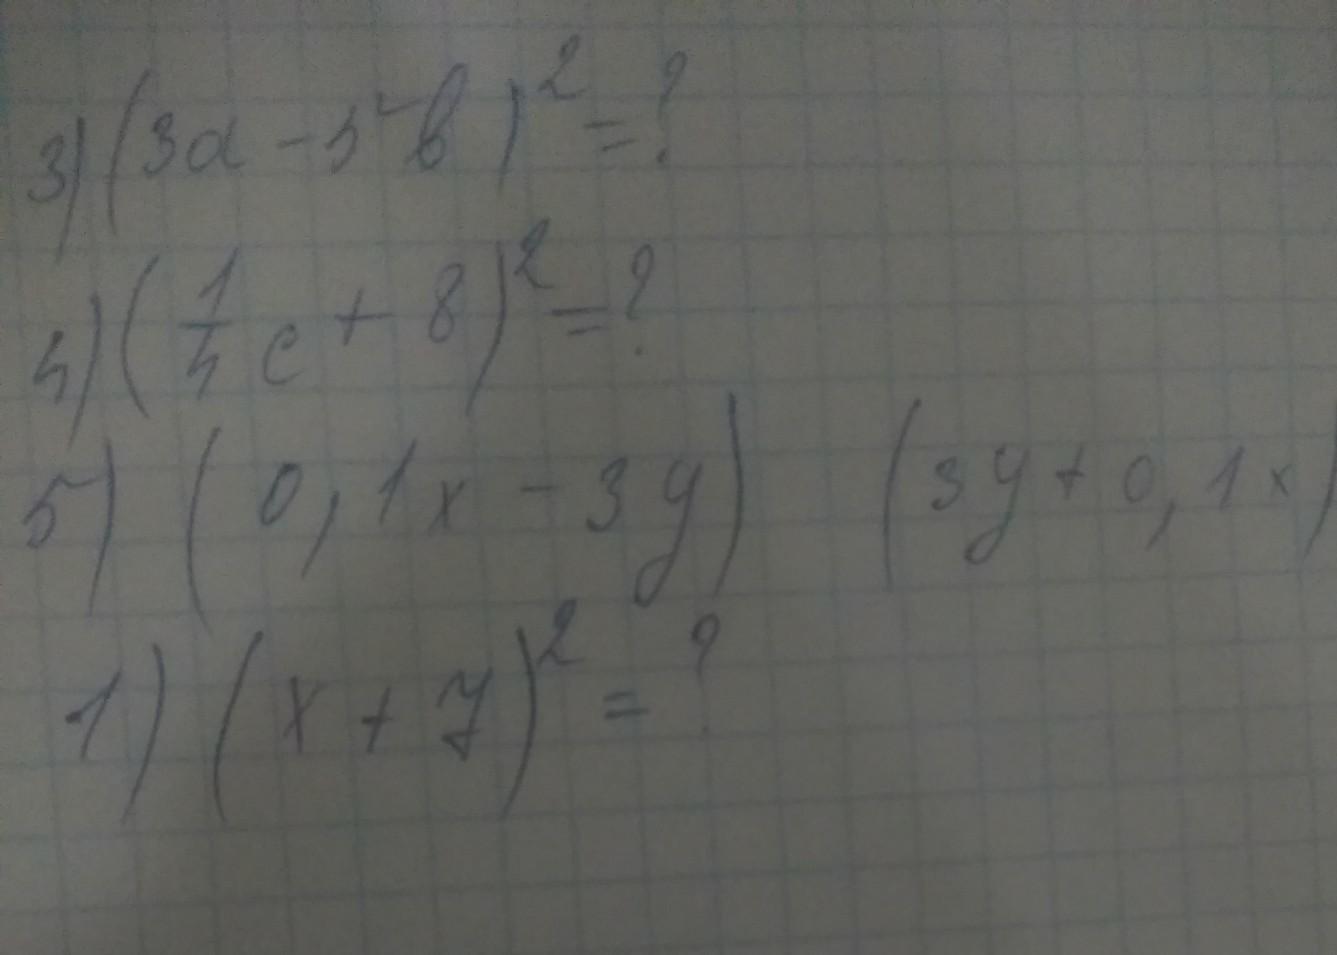 3) (3a - 5b)² = ?
4) (1/4 c + 8)² = ?
5) (0,1x - 3y) (3y + 0,1x)
1) (x + 7)² = ?